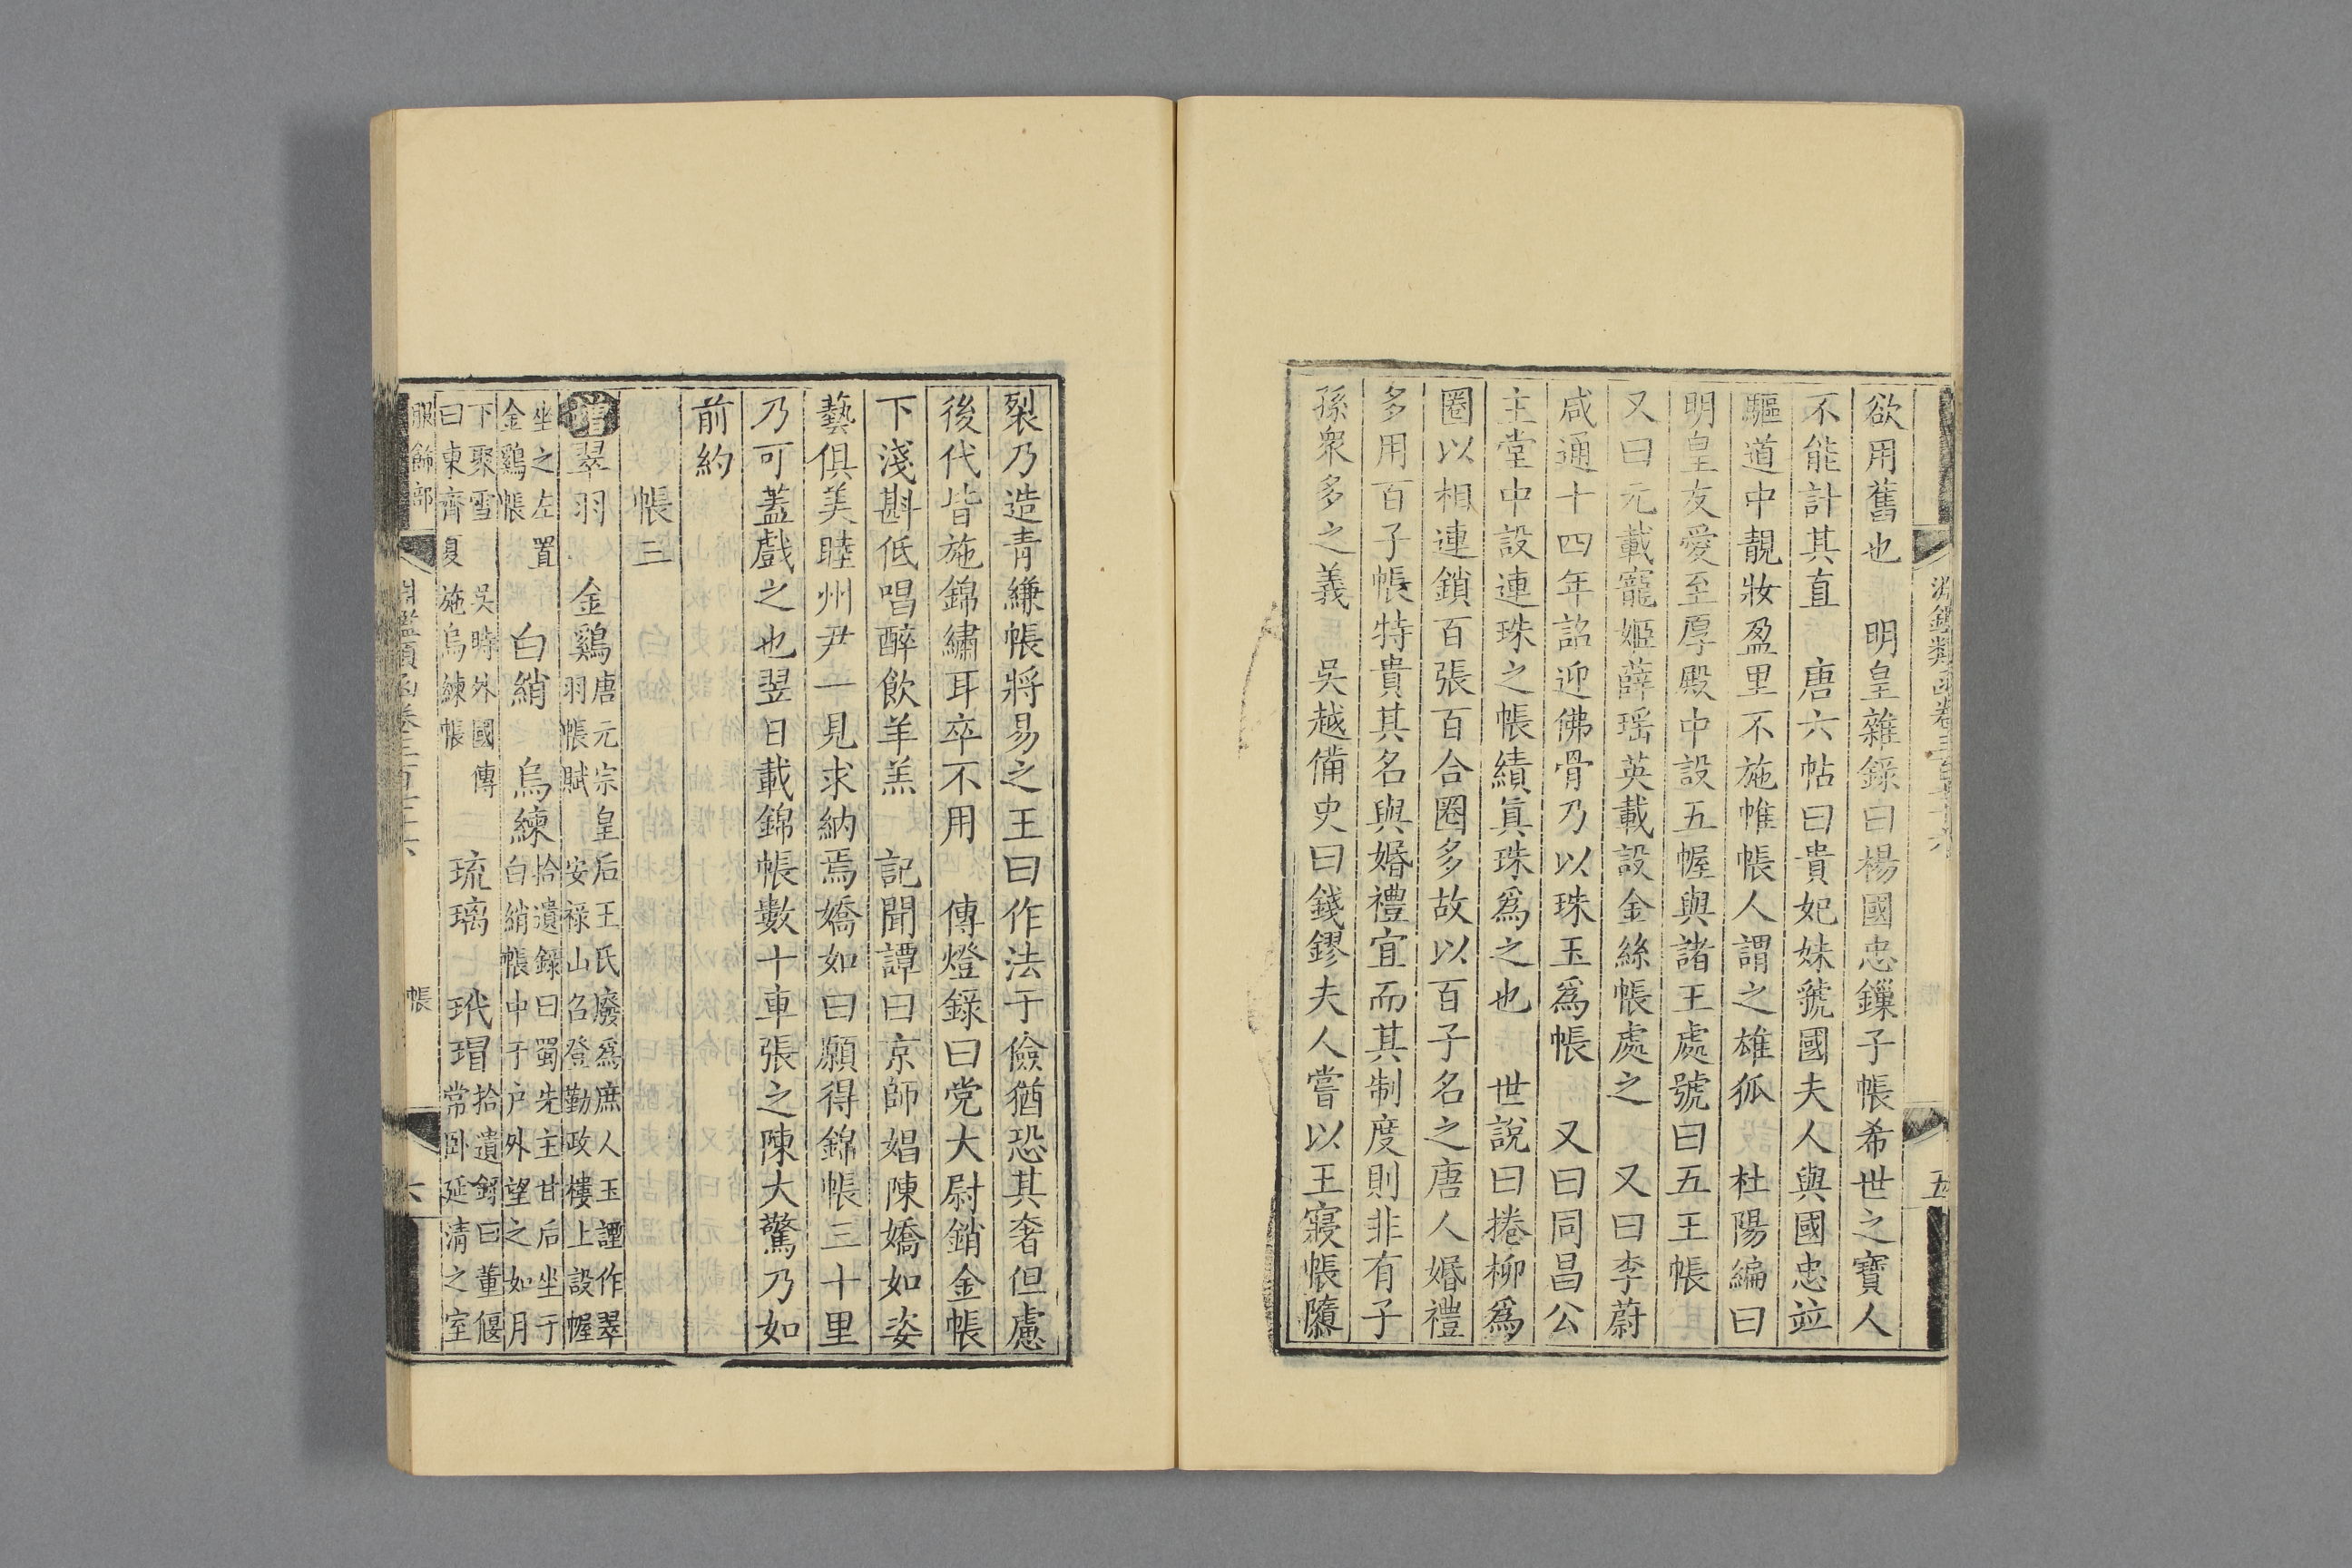 欲用舊也　明皇雜錄曰楊國忠鏁子帳希世之寶人
不能計其直　唐六帖曰貴妃妹虢國夫人與國忠竝
驅道中靚妝盈里不施帷帳人謂之雄狐　杜陽編曰
明皇友愛至厚殿中設五幄與諸王處號曰五王帳
又曰元載寵姬薛瑶英載設金絲帳處之　又曰李蔚
咸通十四年詔迎佛骨乃以珠玉爲帳　又曰同昌公
主堂中設連珠之帳績眞珠爲之也　世說曰捲柳爲
圈以相連鎖百張百合圈多故以百子名之唐人婚禮
多用百子帳特貴其名與婚禮宜而其制度則非有子
孫衆多之義　吳越備史曰錢鏐夫人嘗以王寢帳隳
裂乃造青縑帳將易之王曰作法于儉猶恐其奢但慮
後代皆施錦繡耳卒不用　傳燈錄曰党大尉銷金帳
下淺斟低唱醉飲羊羔　記聞譚曰京師娼陳嬌如姿
藝俱美睦州尹一見求納焉嬌如曰願得錦帳三十里
乃可蓋戲之也翌日載錦帳數十車張之陳大驚乃如
前約
帳三
增翠羽　金鷄唐元宗皇后王氏廢爲庶人王諲作翠
羽帳賦　安祿山召登勤政樓上設幄
坐之左置
金鷄帳　白綃　烏練拾遺錄曰蜀先主甘后坐于
白綃帳中于户外望之如月
下聚雪　吳時外國傳
曰東齊夏施烏練帳　琉璃　玳瑁拾遺錄曰董偃
常卧延清之室
服飾部
淵鑑類函卷三百
帳
六
五